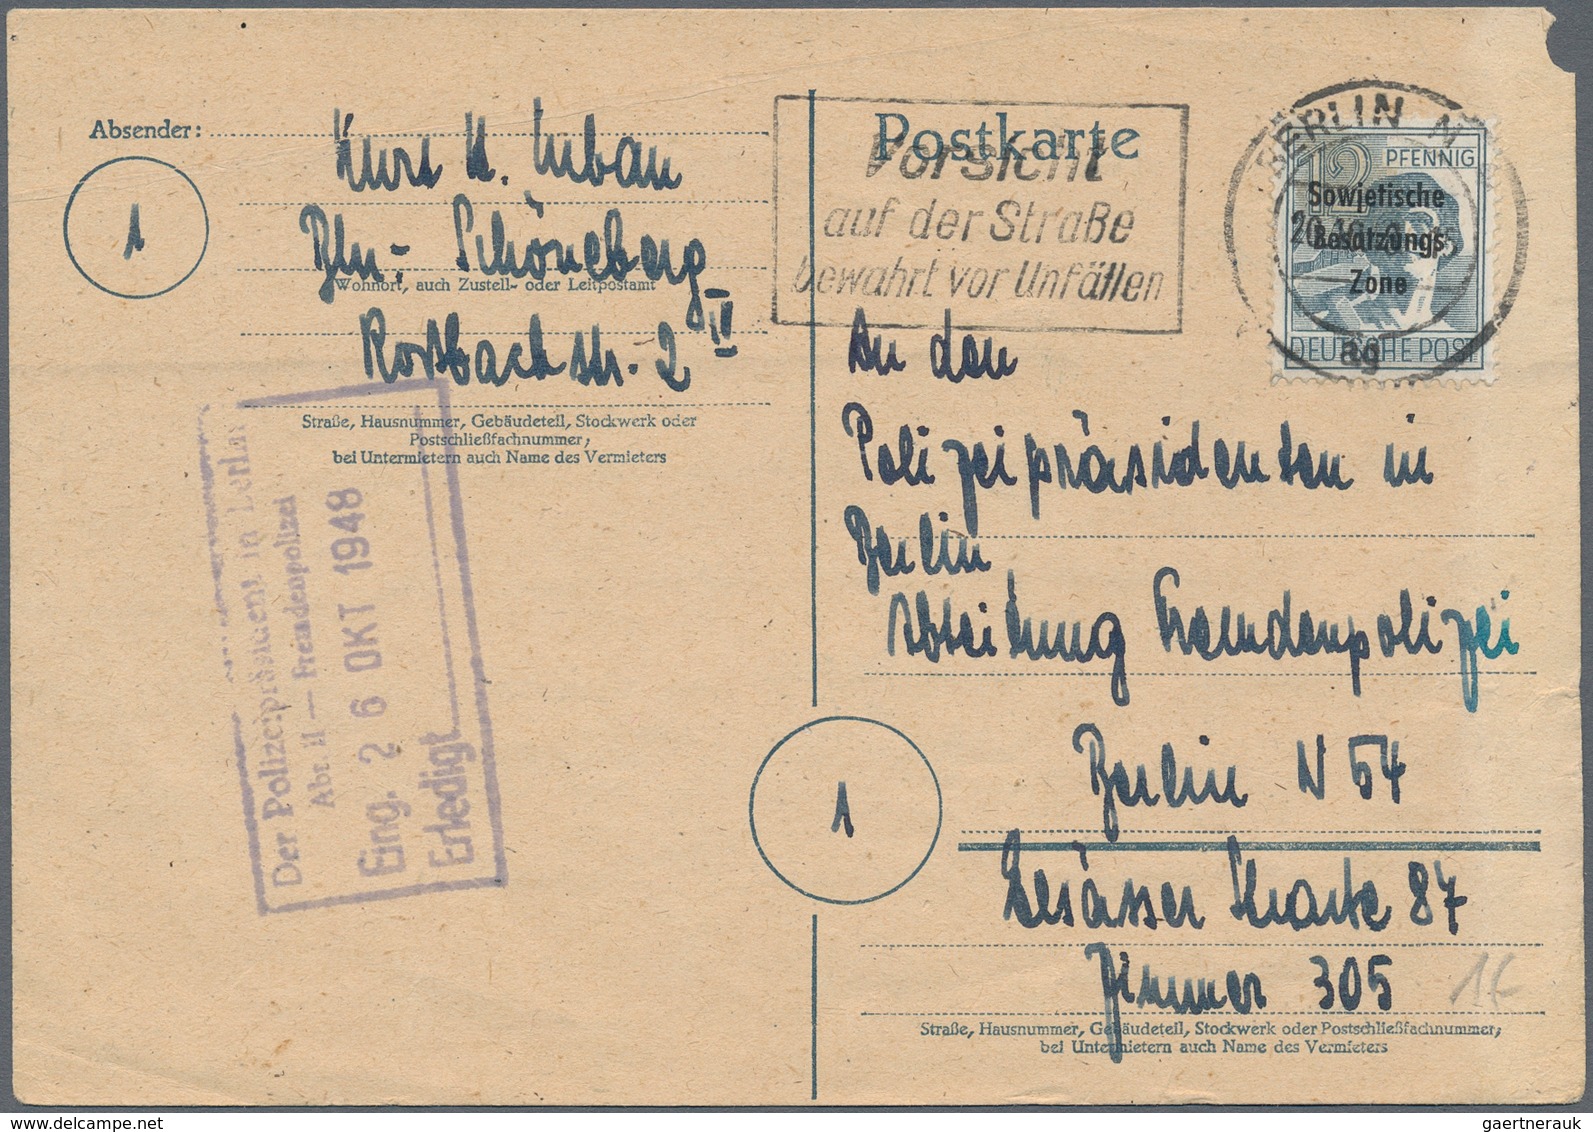 Absender:
1
Kurt K. Urban
Bln.- Schöneberg
Wohnort, auch Zustell- oder Leitpostamt
Roßbachstr. 2 IV
Straße, Hausnummer, Gebäudeteil, Stockwerk oder
Postschließfachnummer;
bei Untermietern auch Name des Vermieters
Der Polizeipräsident in Berlin
Abt. II — Fremdenpolizei
Eing. 26 OKT 1948
Erledigt
Postkarte
Vorsicht
auf der Straße
bewahrt vor Unfällen
BERLIN N
20.10.
ag
12 PFENNIG
Sowjetische
Besatzungs
Zone
DEUTSCHE POST
An den
Polizeipräsidenten in
Berlin
Abteilung Fremdenpolizei
1
Berlin N 54
Elsässer Straße 87
Zimmer 305
1€
Straße, Hausnummer, Gebäudeteil, Stockwerk oder Postschließfachnummer;
bei Untermietern auch Name des Vermieters
www.delcampe.net
gaertnerauk